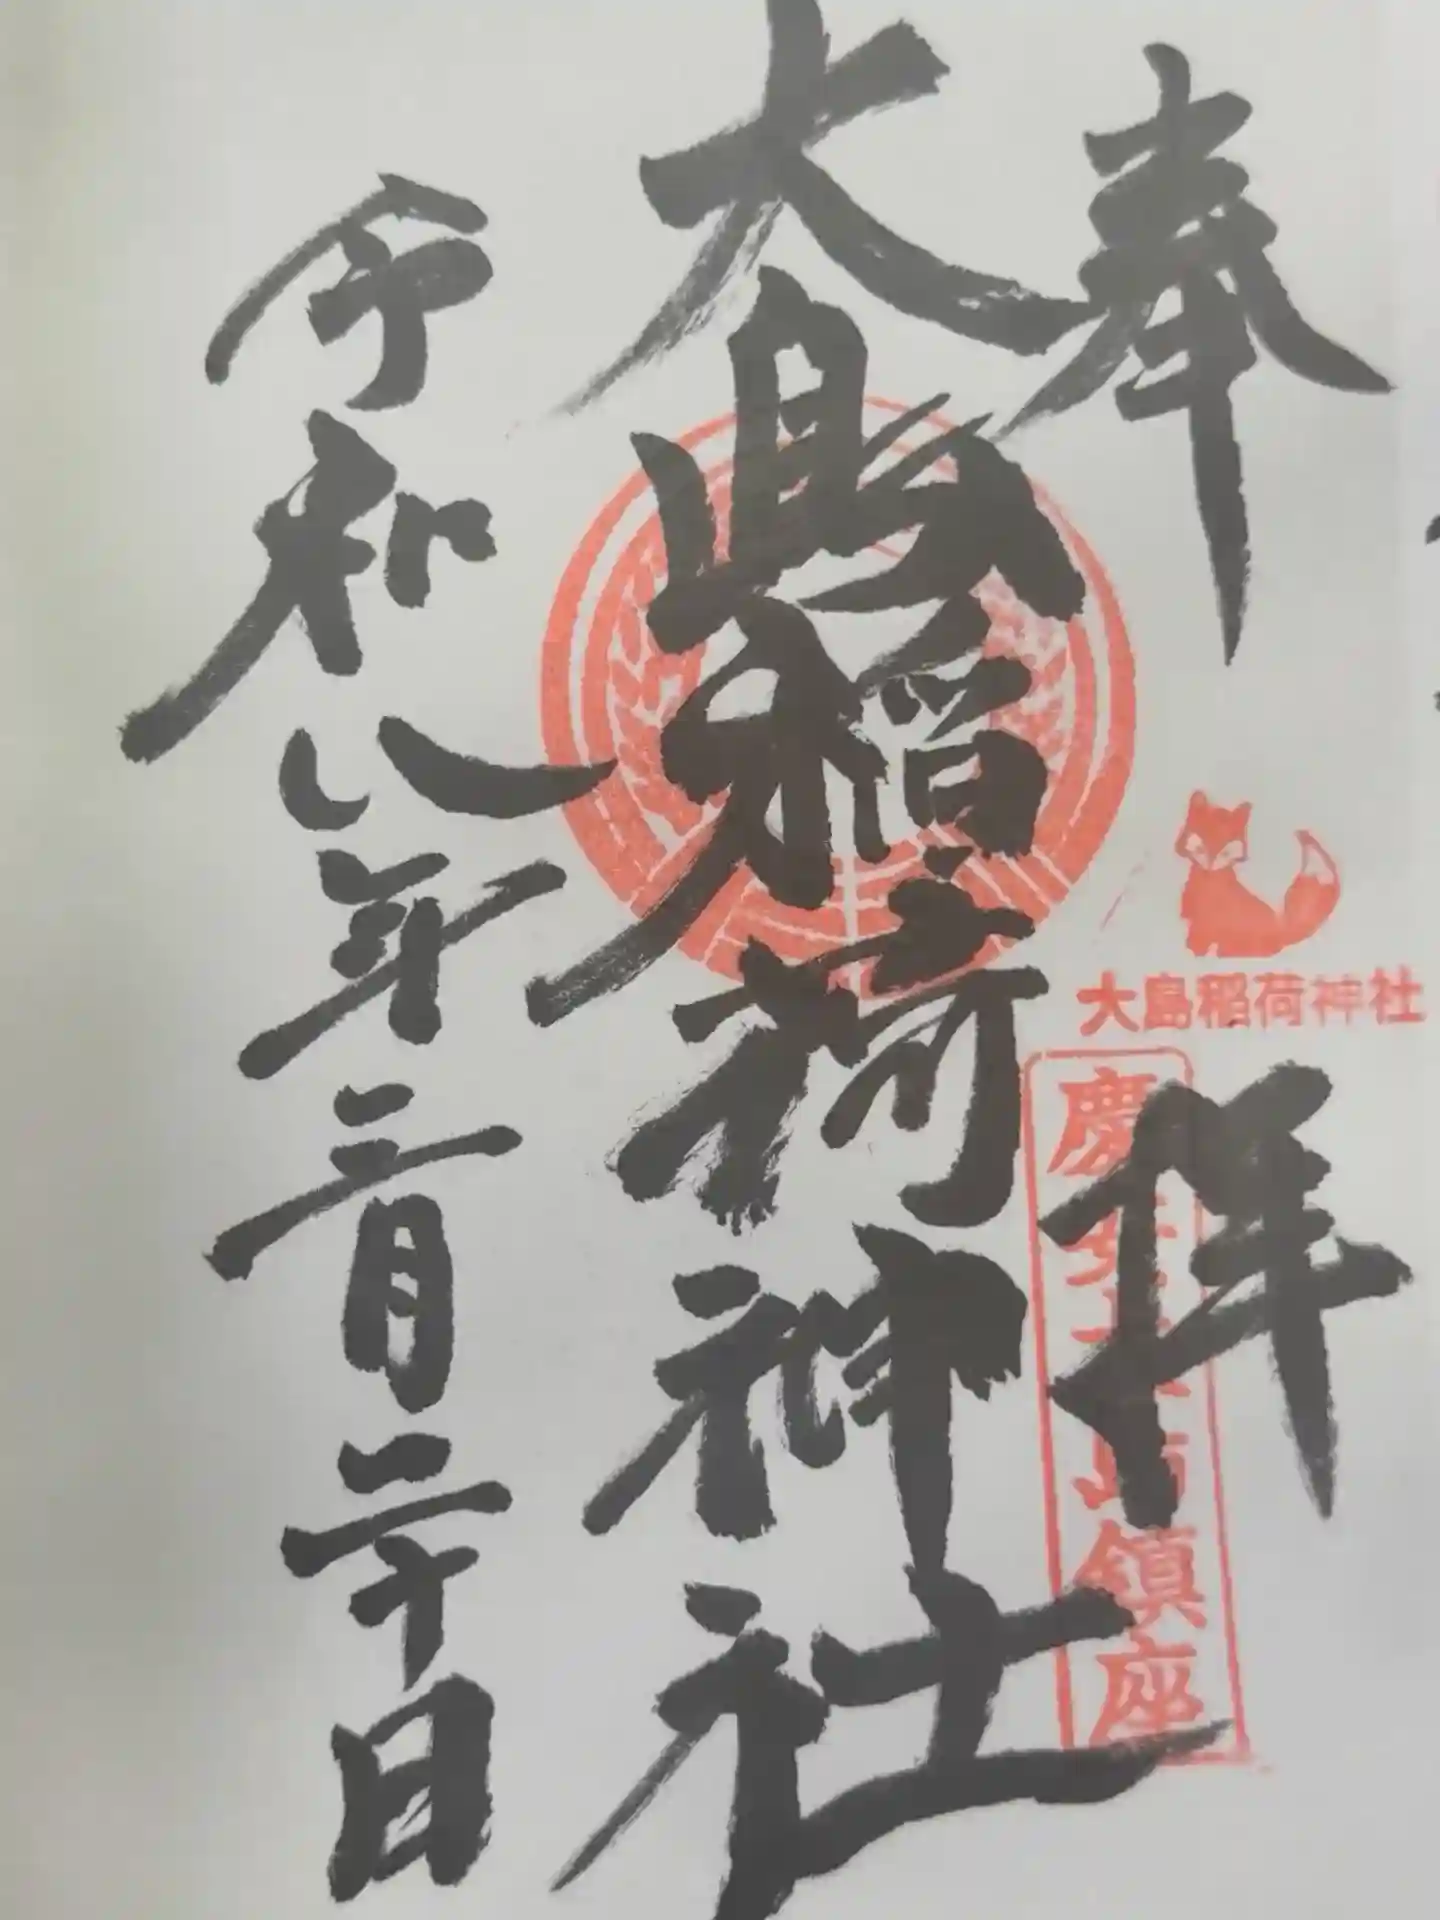 奉拝
大島稲荷神社
慶安大島鎮座
大島稲荷神社
令和八年三月二十日